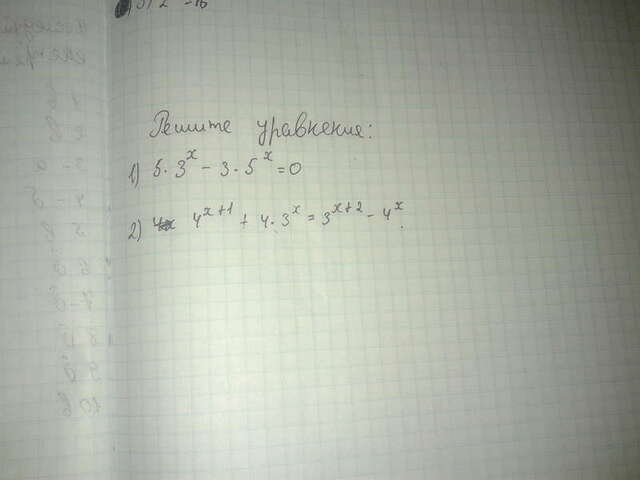 Решите уравнение:
1) 5·3^x - 3·5^x = 0
2) 4^{x+1} + 4·3^x = 3^{x+2} - 4^x.